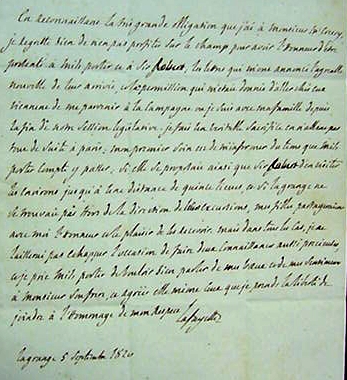 En reconnaissant la très grande obligation que j'ai à Monsieur
je regrette bien de n'en pas profiter sur le champ pour avoir l'honneur d'être
présenté à Milady Porter et à Sir Robert, la lettre qui m'en annonce l'agréable
nouvelle de leur arrivée, et la permission qui m'était donnée d'aller chez eux
vienne de me parvenir à la campagne où je suis avec ma famille depuis
la fin de notre session législative. je fais un véritable sacrifice en n'allant pas
tout de suite à paris. mon premier soin est de m'informer du tems que milady
porter compte y passer. Si elle se proposait ainsi que Sir Robert de visiter
les environs jusqu'à une distance de quinze lieues, et si lagrange ne
se trouvait pas hors de la direction de leurs excursions, mes filles partageraient
avec moi l'honneur et le plaisir de les recevoir. mais dans tous les cas, je ne
laisserai pas échapper l'occasion de faire deux connaissances aussi précieuses,
et je prie milady porter de vouloir bien parler de mes vœux et de mes sentimens
à monsieur son frère, et agréer elle même ceux que je prends la liberté de
joindre à l'hommage de mon Respect
Lafayette
Lagrange 5 Septembre 1820